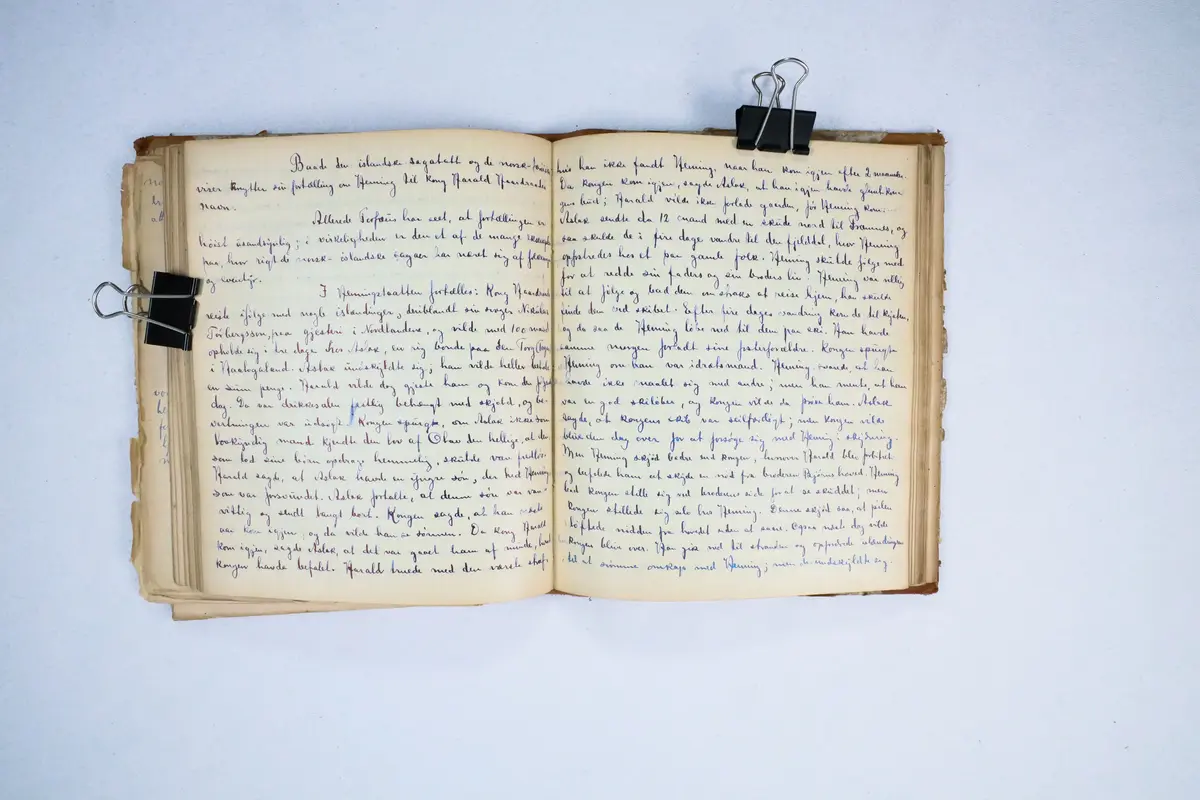 Baade den islandske sagatatt og de norsk-færøiske
viser knytter sin fortælling om Heming til kong Harald Haardraades
navn.
Allerede Torfæus har seet, at fortællingen er
høist usandsynlig; i virkeligheden er den et af de mange exempler
paa, hvor rigt de norsk-islandske sagaer har næret sig af
og eventyr.
I Hemingstaatten fortælles: Kong Haardraade
reiste ifølge med nogle islændinger, deriblandt sin svoger Nikolas
Torbergsson, paa gjesteri i Nordlandene, og vilde med 100 mand
opholde sig i tre dage hos Aslak, en rig bonde paa den
i Haalogaland. Aslak undskyldte sig; han vilde heller betale
en sum penge. Harald vilde dog gjeste ham og kom den
dag. Da var drikkesalen prektig behængt med skjold, og be-
vertningen var udsøgt. Kongen spurgte, om Aslak ikke som
lovkyndig mand kjendte den lov af Olav den hellige, at den
som lod sine børn opdrage hemmelig, skulde være fredløs.
Harald sagde, at Aslak havde en yngre søn, der hed Heming,
som var forsvundet. Aslak fortalte, at denne søn var van-
vittig og sendt langt bort. Kongen sagde, at han neste
aar kom igjen, og da vilde han se sønnen. Da kong Harald
kom igjen, sagde Aslak, at det var gaaet ham af minde, hvad
kongen havde befalet. Harald truede med den værste straf,
hvis han ikke fandt Heming, naar han kom igjen efter 2 maaneder.
Da kongen kom igjen, sagde Aslak, at han igjen havde glemt kon-
gens bud; Harald vilde ikke forlade gaarden, før Heming kom.
Aslak sendte da 12 mand med en skude nord til Framnes, og
saa skulde de i fire dage vandre til den fjelddal, hvor Heming
opfostredes hos et par gamle folk. Heming skulde følge med
for at redde sin faders og sin broders liv. Heming var villig
til at følge og bad dem om straks at reise hjem, han skulde
finde dem ved skibet. Efter fire dages vandring kom de til kysten,
og da saa de Heming løbe ned til dem paa ski. Han havde
samme morgen forladt sine fosterforældre. Kongen spurgte
Heming om han var idrætsmand. Heming svarede, at han
havde ikke maalet sig med andre; men han mente, at han
var en god skiløber, og kongen vilde da prøve ham. Aslak
sagde, at kongens skib var seilfærdigt; men kongen vilde
blive den dag over for at forsøge sig med Heming i skydning.
Men Heming skjød bedre end kongen, hvorover Harald blev forbitret
og befalede ham at skyde en nød fra broderen Bjørns hoved. Heming
bad kongen stille sig ved broderens side for at se skuddet; men
kongen stillede sig selv hos Heming. Denne skjød saa, at pilen
løftede nødden fra hovedet uden at saare. Ogsaa neste dag vilde
kongen blive over. Han gik ned til stranden og opfordrede islændingen
til at svømme omkaps med Heming; men de undskyldte sig.